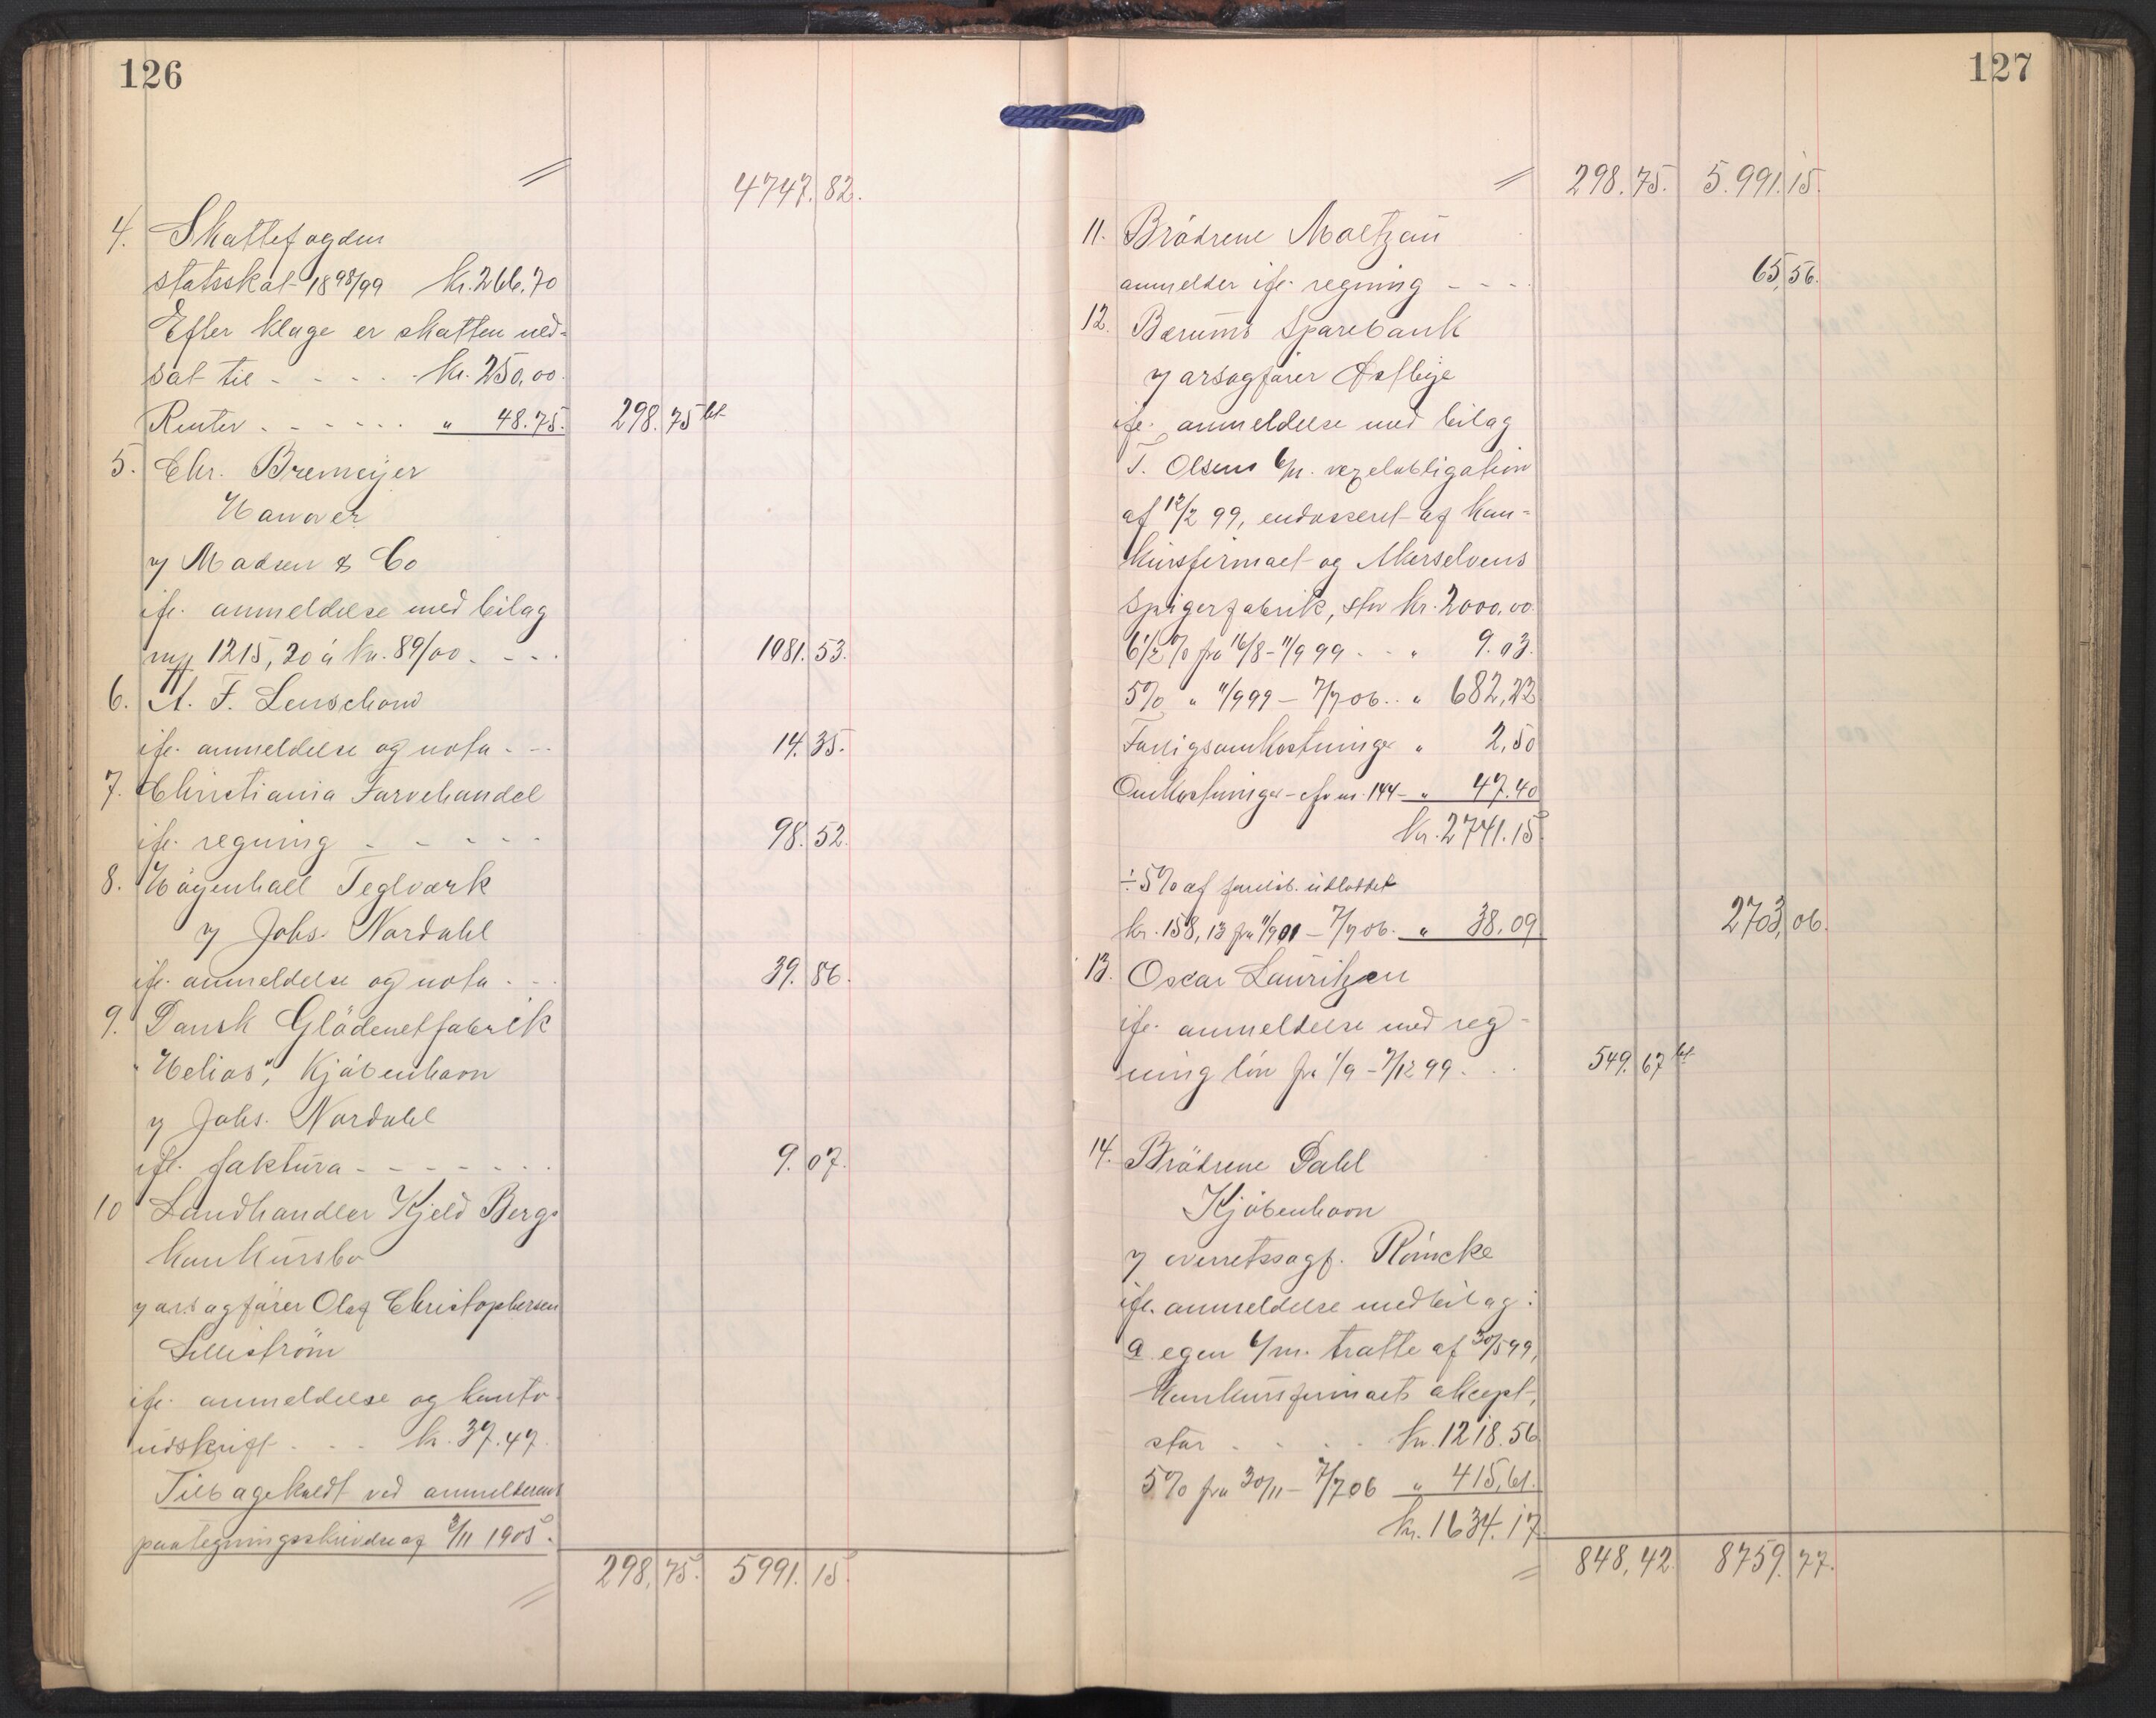 126
〃 4747.82.
4. Skattefogden
statsskat 1898/99 kr. 266.70
Efter klage er skatten ned-
sat til - - - - - kr. 250,00.
Renter - - - - - - „ 48.75. 298.75 bt
5. Chr. Bremeijer
Hanover
v/ Madsen & Co
ifl. anmeldelse med bilag
1215,20 à kr. 89/00 - - - 1081.53.
6. A. F. Lenschow
ifl. anmeldelse og nota - - - 14.35.
7. Christiania Farvehandel
ifl. regning - - - - - 98.52.
8. Högenhall Teglværk
v/ Johs. Nordahl
ifl. anmeldelse og nota - - - 39.86.
9. Dansk Glödenetfabrik
"Helios", Kjöbenhavn
v/ Johs. Nordahl
ifl. faktura - - - - - - - 9.07.
10 Landhandler Kjeld Bergs
konkursbo
v/ o.r.sagförer Olaf Christophersen
Lilleström
ifl. anmeldelse og konto-
udskrift - - - kr. 37.47.
Tilbagekaldt ved anmelderens
paategningsskrivelse af 2/11 1905.
〃 298,75. 5991.15.
127
〃 298.75. 5.991.15.
11. Brödrene Moltzau
anmelder ifl. regning - - - - 65,56.
12. Bærums Sparebank
v/ o.r.sagförer Astbye
ifl. anmeldelse med bilag
T. Olsens 6/m. vexelobligation
af 12/2 99, endosseret af kon-
kursfirmaet og Akerselvens
Spigerfabrik, stor kr. 2000,00.
6 1/2 % fra 16/8 - 11/9 99 - - „ 9.03.
5% „ 11/9 99 - 7/7 06 - - „ 682,22
Farligsomkostninger „ 2,50
Omkostninger - cfr nr. 144 - „ 47.40
kr. 2741.15.
÷ 5% af forelöb. udloddet
kr. 158,13 fra 11/9 01 - 7/7 06. „ 38.09 2703,06.
13. Oscar Lauritzen
ifl. anmeldelse med reg-
ning lön fra 1/9 - 7/12 99 - - - 549.67 bt
14. Brödrene Dahl
Kjöbenhavn
v/ overretssagf. Röincke
ifl. anmeldelse med bilag:
a. egen 6/m. tratte af 30/5 99,
konkursfirmaets akcept,
stor - - - - kr. 1218.56
5% fra 30/11 - 7/7 06 „ 415,61.
kr. 1634.17.
〃 848,42. 8759.77.